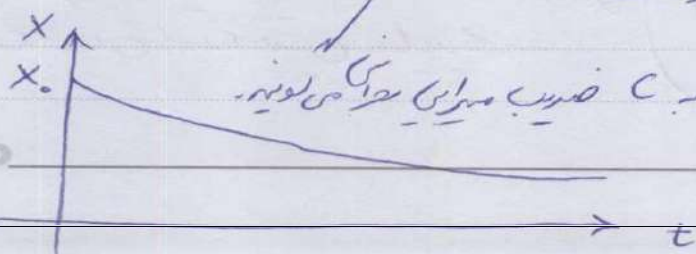 X
X₀
به C ضریب میرایی بحرانی می گویند.
t